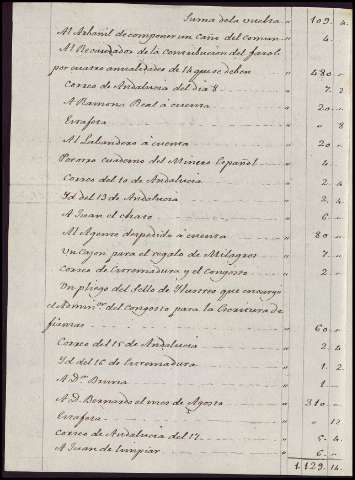 Suma de la vuelta " 109. 4.
Al Albañil de componer un caño del comun " 4.
Al Recaudador de la contribucion del farol
por cuatro anualidades de 14 que se deben " 480 "
Correo de Andalucia del dia 8 " 7. 2
A Ramona Real á cuenta " 20 "
Estafeta " " 8
Al Labandero á cuenta " 20 "
Por otro cuaderno del Minero Español " 4 "
Correo del 10 de Andalucia " 2 4
Yd del 13 de Andalucia " 2. 4
A Juan el chato " 6 "
Al Agente despedido á cuenta " 80 "
Un cajon para el regalo de Milagros " 7. "
Correo de Estremadura y el Congosto " 2 "
Un pliego del Sello de Ylustres que encargó
el Admin.or del Congosto para la Escritura de
fianzas " 60 "
Correo del 15 de Andalucia " 2 4
Yd del 16 de Estremadura " 1. 2
A D.a Bruna " 1
A D. Bernardo el mes de Agosto " 310 "
Estafeta " " 12
Correo de Andalucia del 17 " 5. 4
A Juan de limpiar " 6. "
1.129. 14.